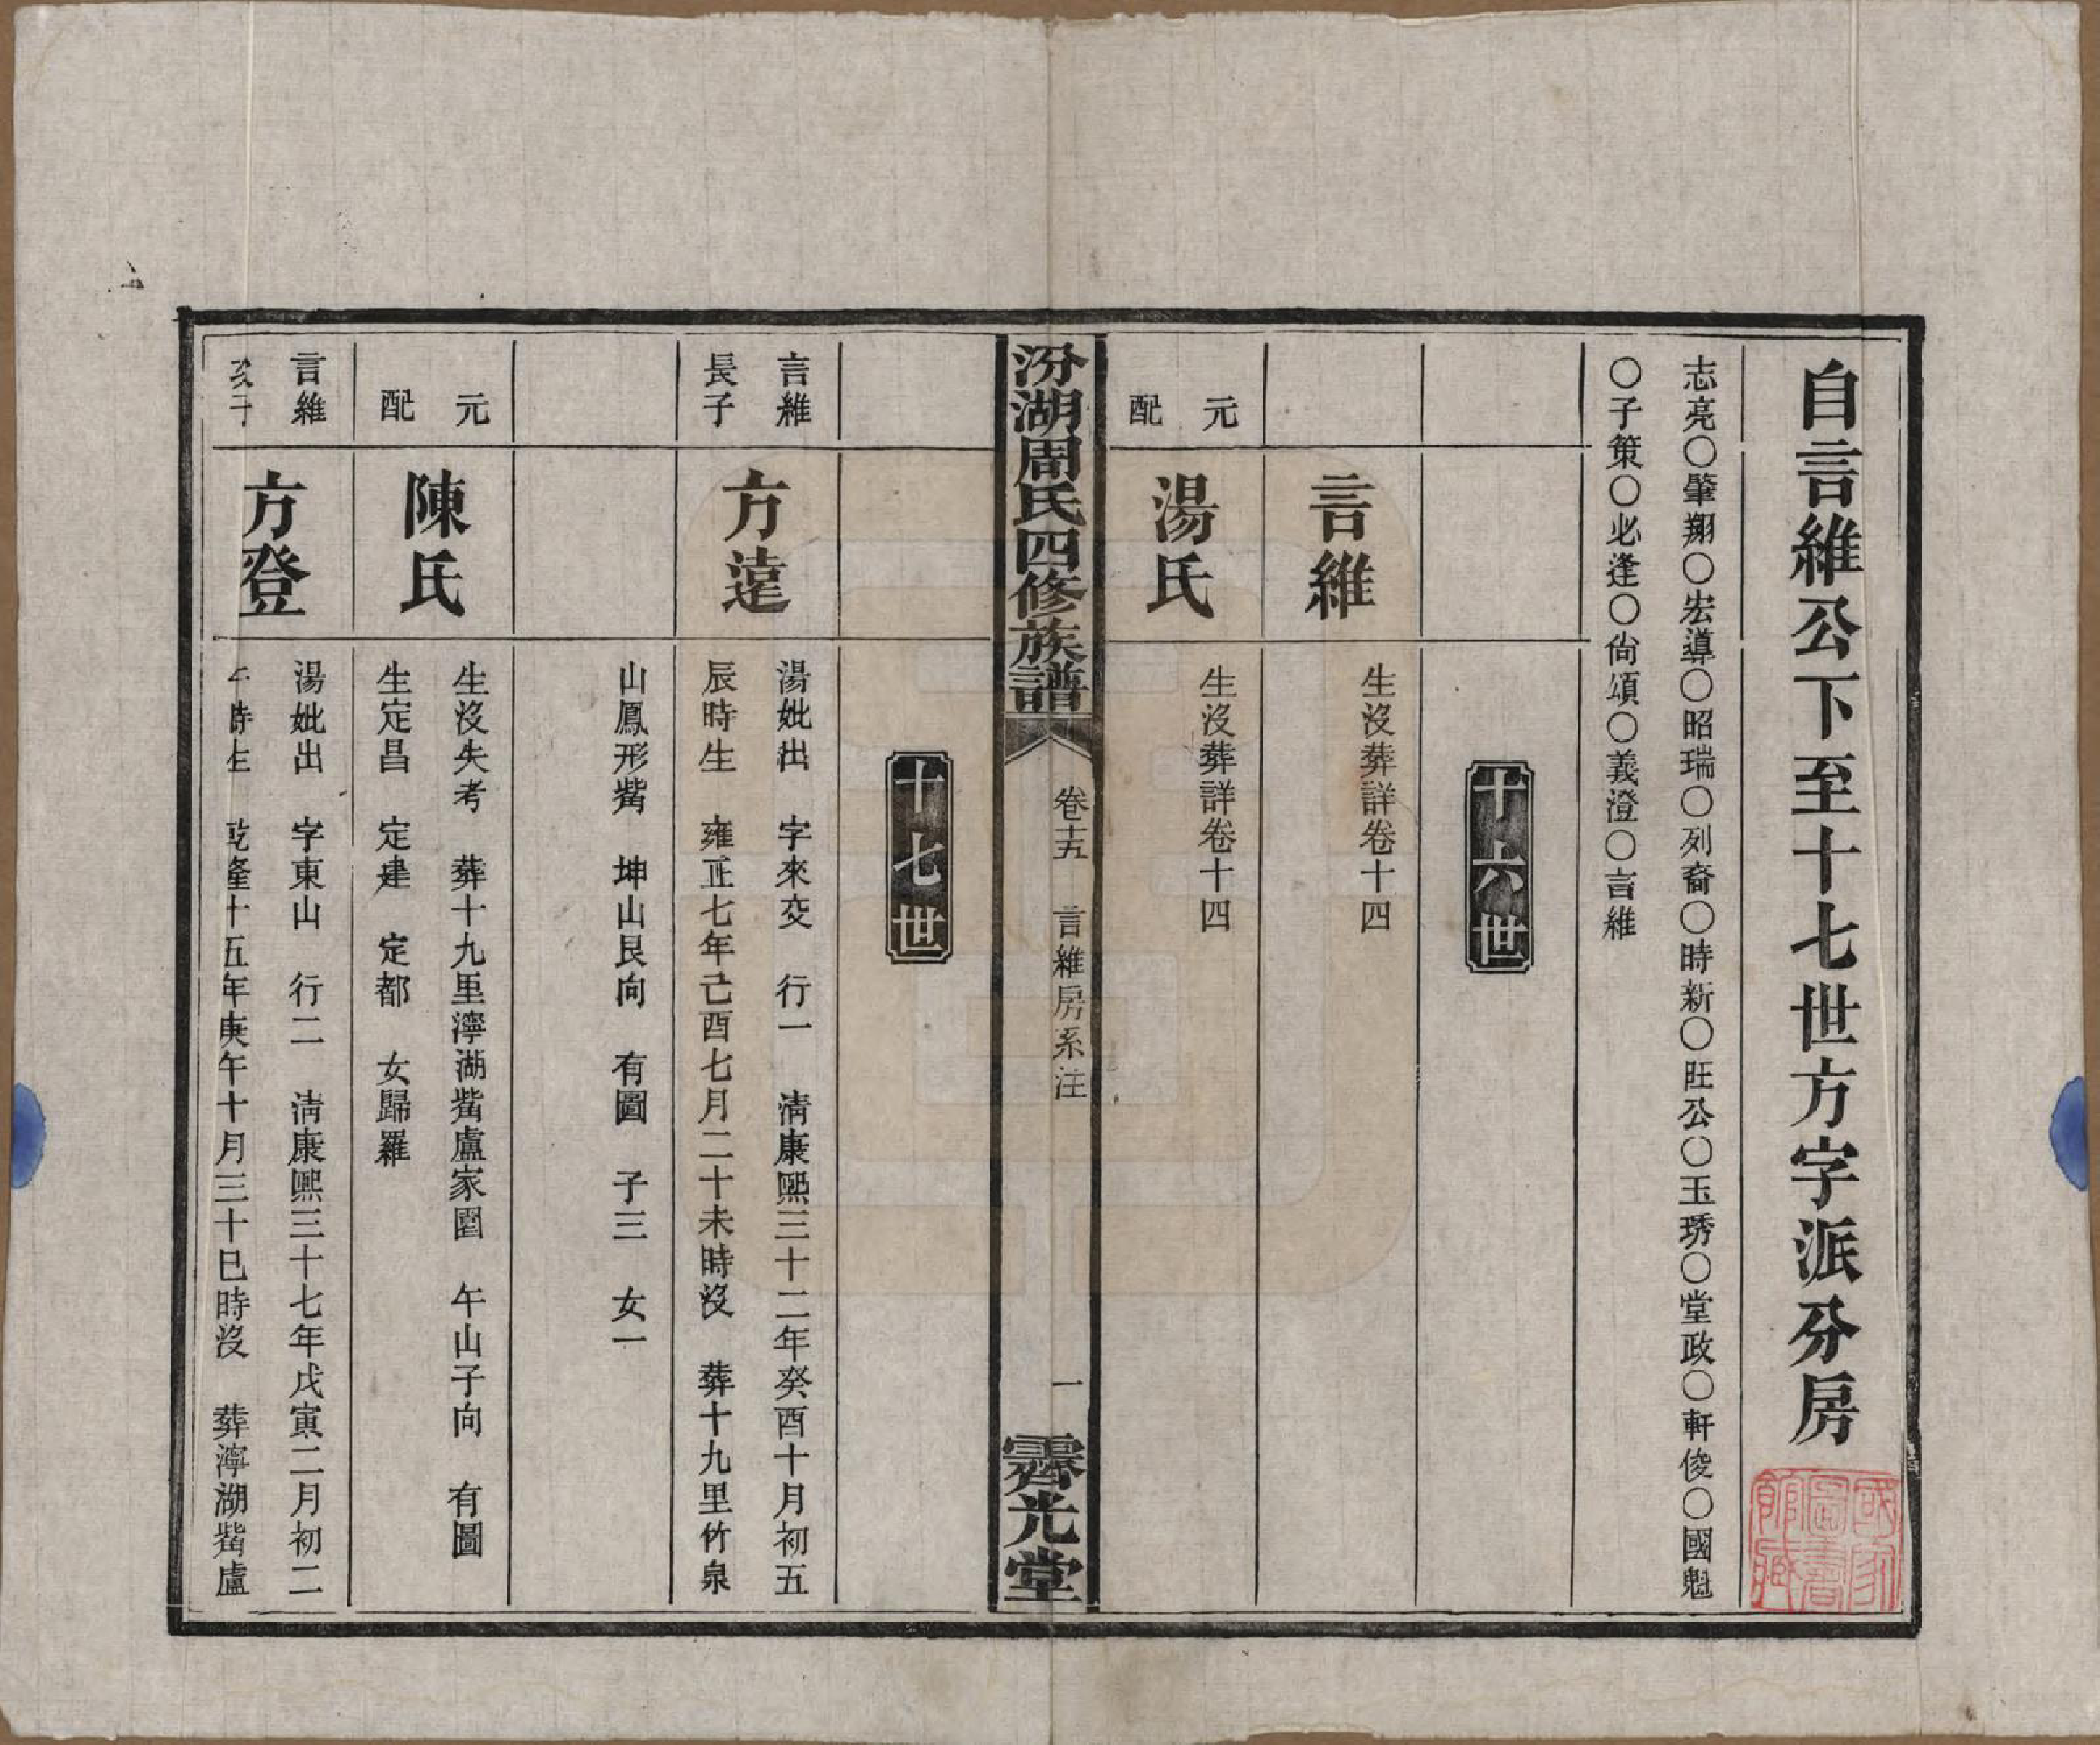 自言維公下至十七世方字派分房
志亮〇肇翔〇宏導〇昭瑞〇列裔〇時新〇旺公〇玉琇〇堂政〇軒俊〇國魁
〇子策〇必逢〇尙頌〇義澄〇言維
十六世
言維
生沒葬詳卷十四
元配
湯氏
生沒葬詳卷十四
汾湖周氏四修族譜
卷十五
言維房系注
一
霽光堂
十七世
言維
長子
方達
湯妣出 字來交 行一 淸康熙三十二年癸酉十月初五
辰時生 雍正七年己酉七月二十未時沒 葬十九里竹泉
山鳳形觜 坤山艮向 有圖 子三 女一
元配
陳氏
生沒失考 葬十九里濘湖觜盧家園 午山子向 有圖
生定昌 定建 定都 女歸羅
言維
次子
方登
湯妣出 字東山 行二 淸康熙三十七年戊寅二月初二
午時生 乾隆十五年庚午十月三十巳時沒 葬濘湖觜盧
國家圖書館藏